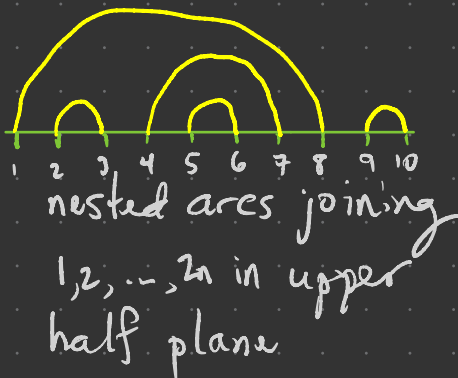 1 2 3 4 5 6 7 8 9 10
nested arcs joining
1,2,...,2n in upper
half plane